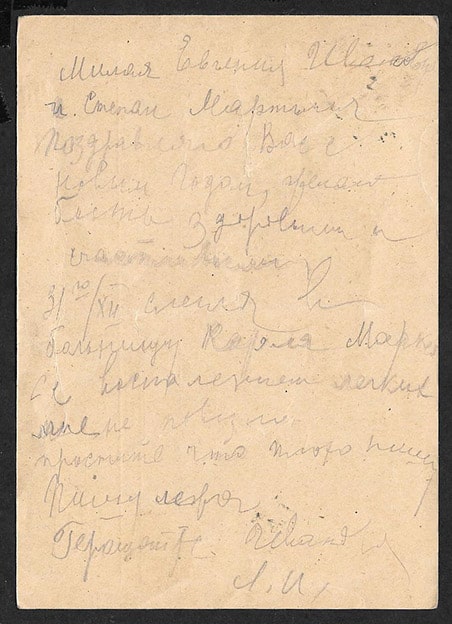 Милая Евгения Ивановна
и Степан Мартыныч
Поздравляю Вас с
новым Годом, желаю
быть здоровыми и
счастливыми
31го/XII слегла
больницу Карла Маркса
с воспалением легких
мне не повезло.
простите что плохо пишу
Пишу лежа
А. И.